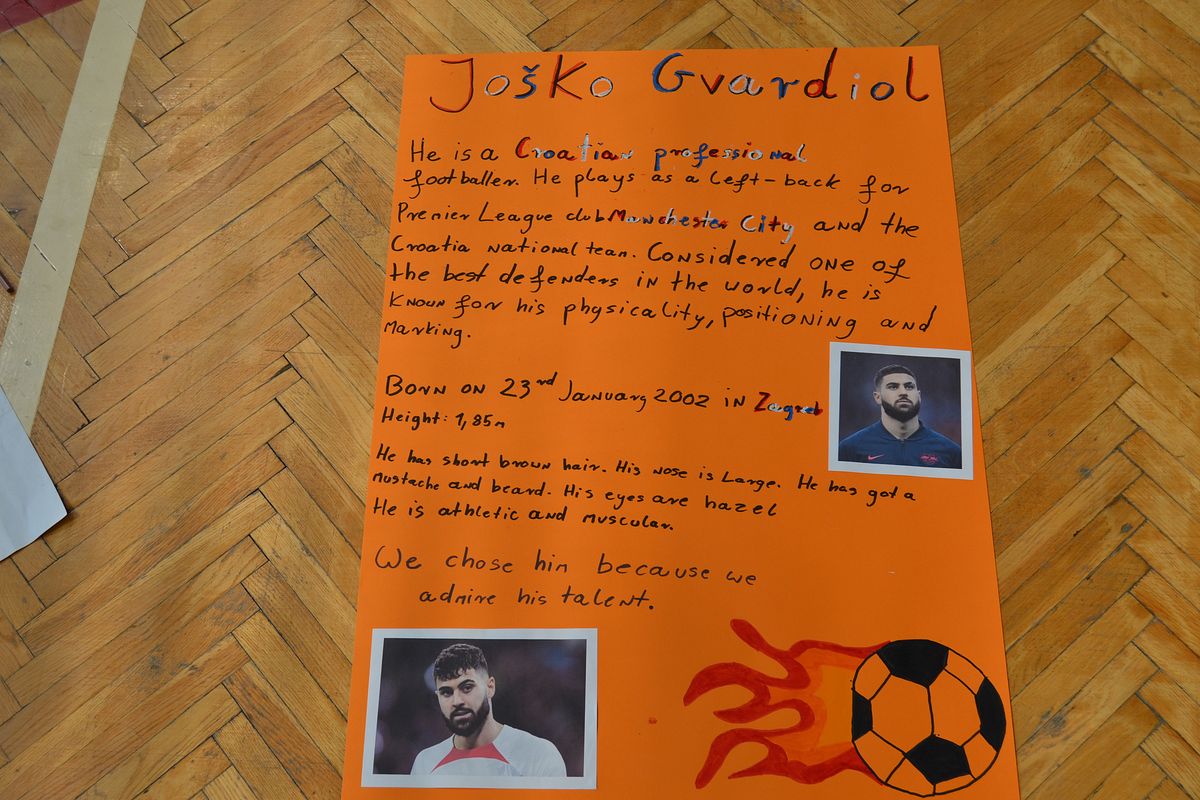 Joško Gvardiol
He is a Croatian professional
footballer. He plays as a left-back for
Premier League club Manchester City and the
Croatia national team. Considered one of
the best defenders in the world, he is
known for his physicality, positioning and
marking.
Born on 23rd January 2002 in Zagreb
Height: 1,85m
He has short brown hair. His nose is large. He has got a
mustache and beard. His eyes are hazel
He is athletic and muscular.
We chose him because we
admire his talent.